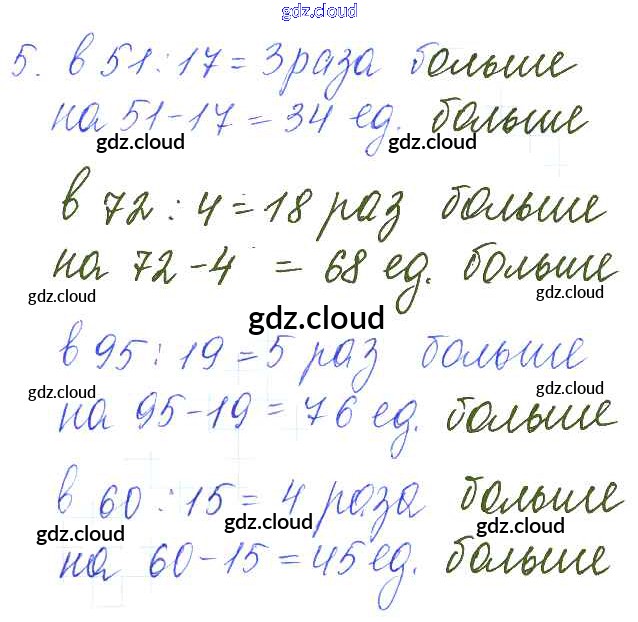 gdz.cloud
5. в 51:17=3 раза больше
на 51-17=34 ед. больше
gdz.cloud gdz.cloud
в 72:4=18 раз больше
на 72-4 = 68 ед. больше
gdz.cloud gdz.cloud
gdz.cloud
в 95:19=5 раз больше
gdz.cloud gdz.cloud
на 95-19=76 ед. больше
в 60:15=4 раза больше
gdz.cloud gdz.cloud gdz.cloud
на 60-15=45 ед. больше